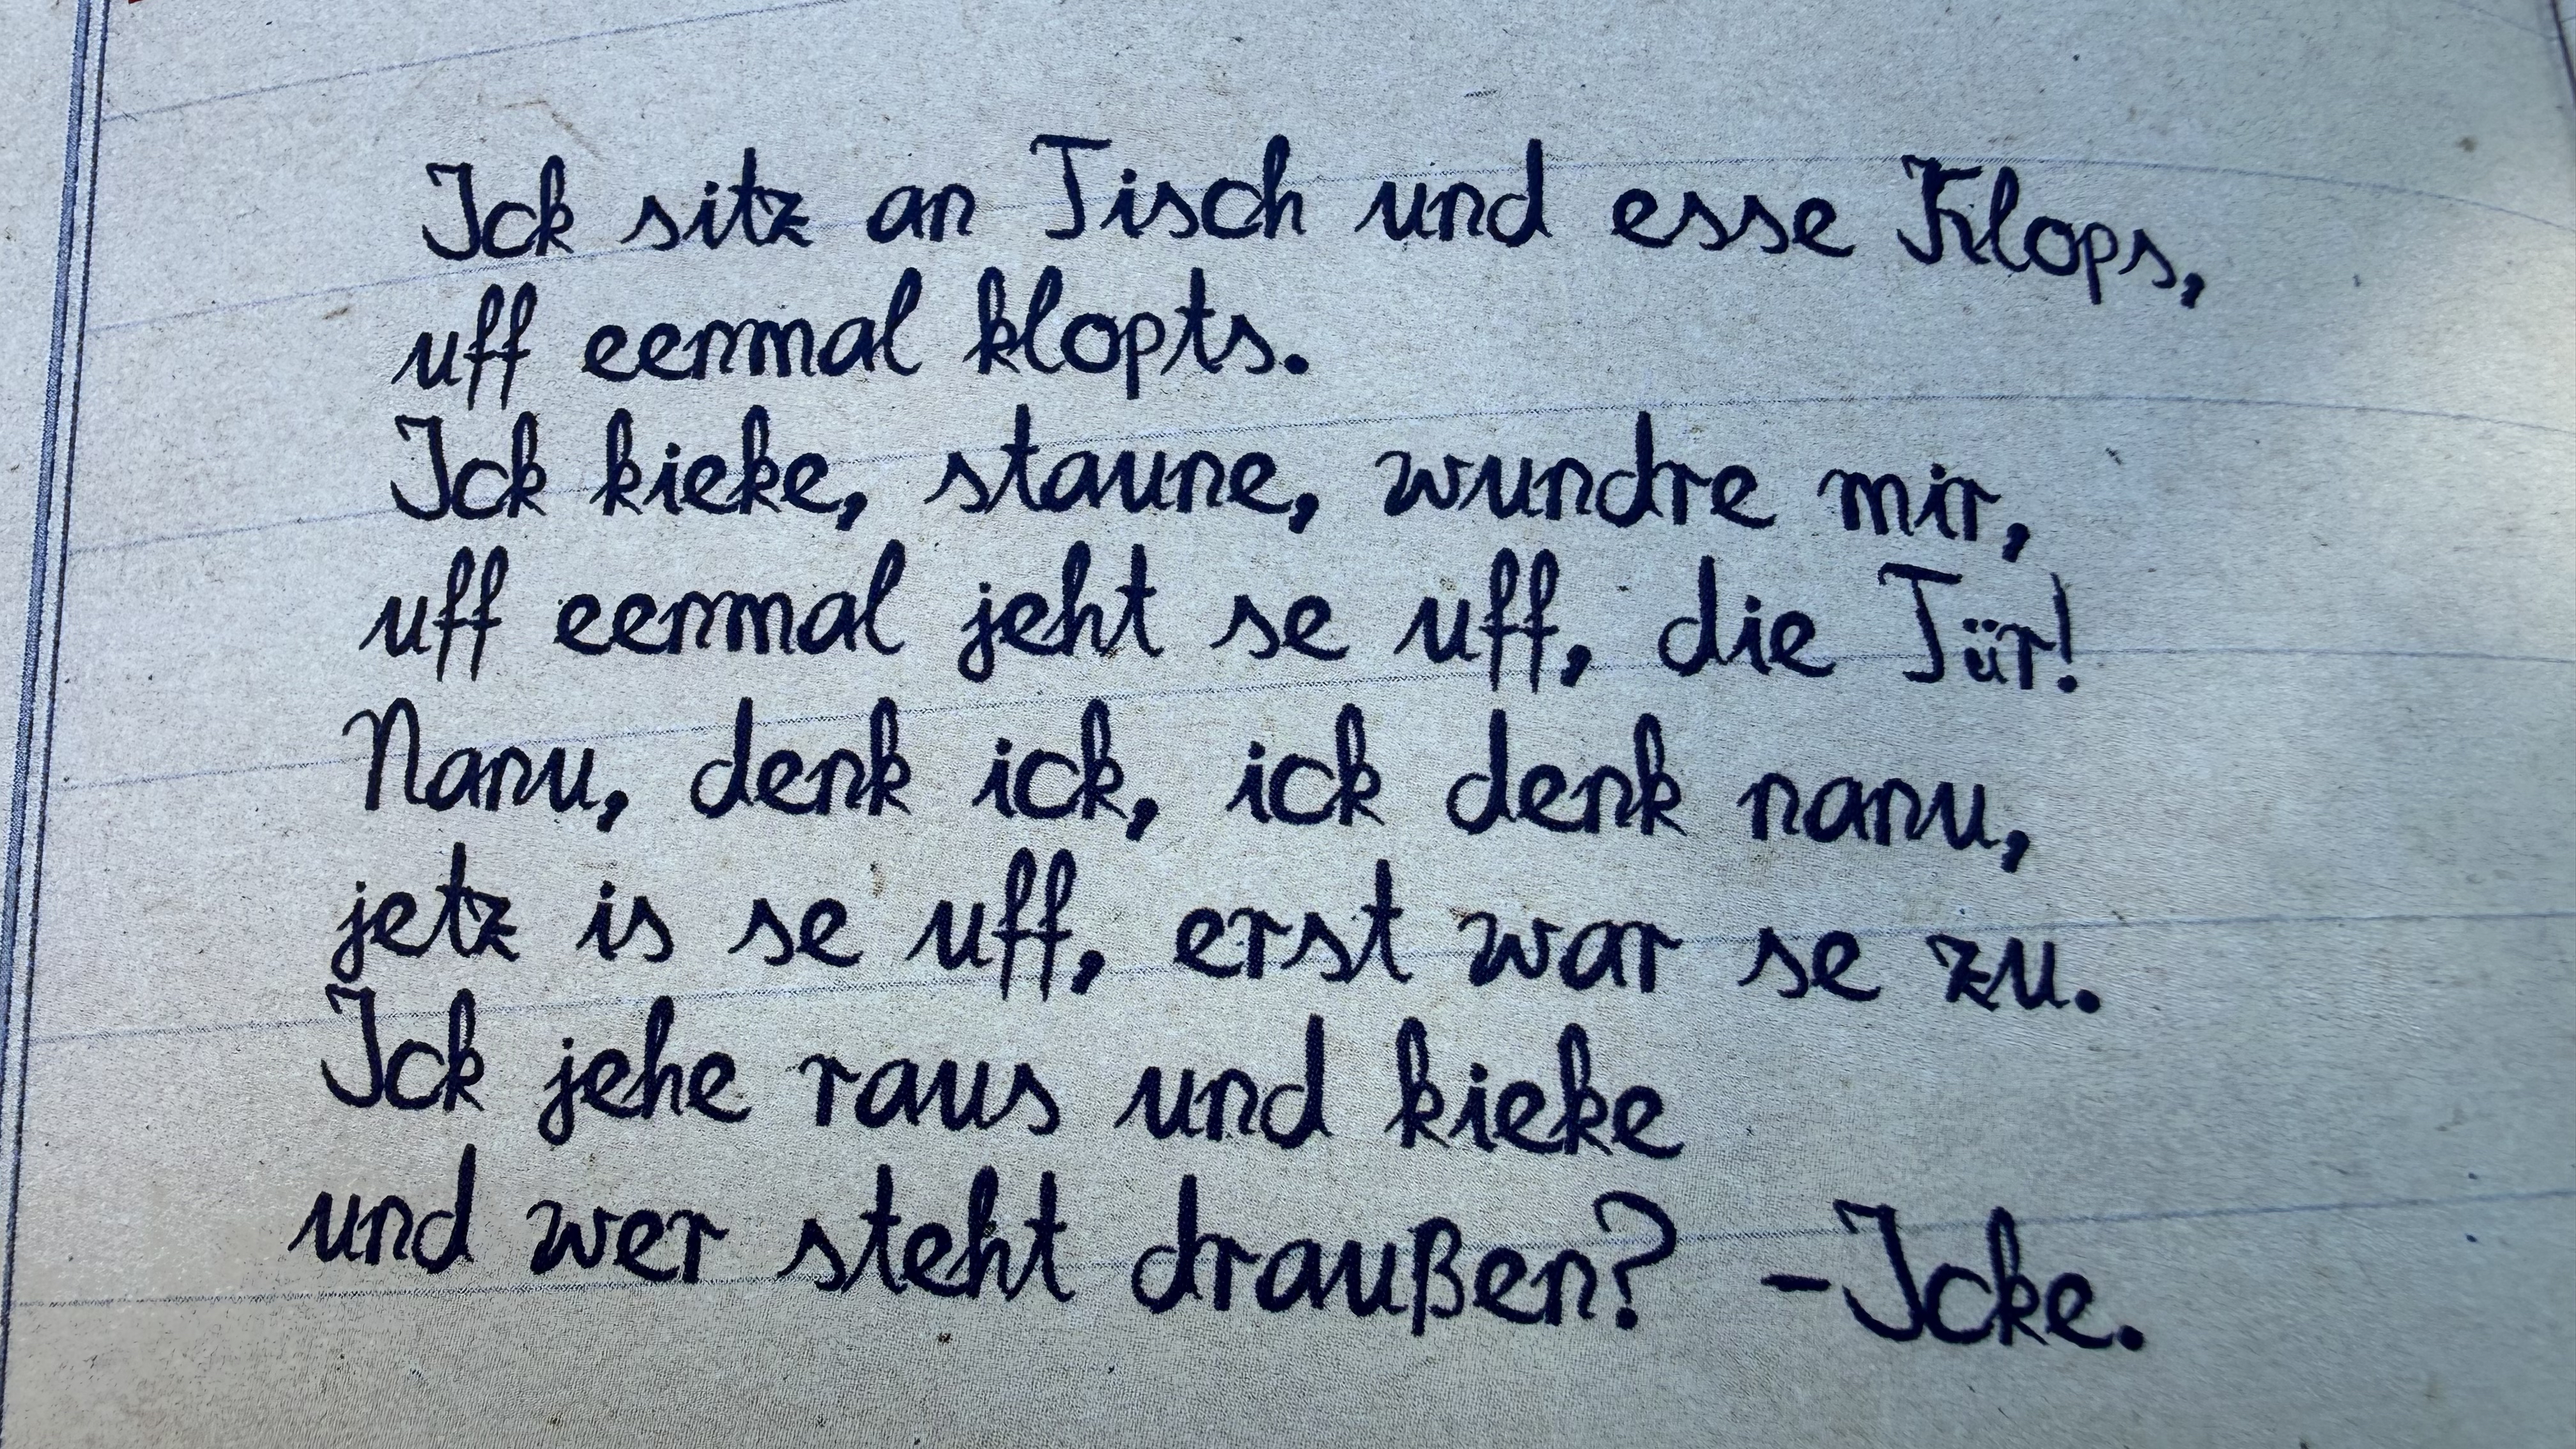 Ick sitz an Tisch und esse Klops,
uff eenmal klopts.
Ick kieke, staune, wundre mir,
uff eenmal jeht se uff, die Tür!
Nanu, denk ick, ick denk nanu,
jetz is se uff, erst war se zu.
Ick jehe raus und kieke
und wer steht draußen? -Icke.